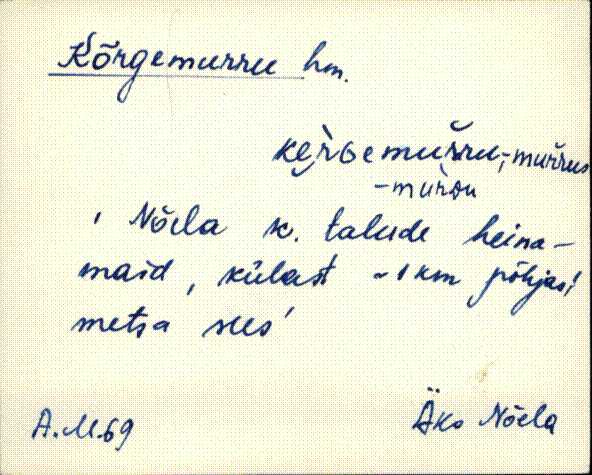 Kõrgemurru hm.
kẹ̀rGemur̆ru, -mur̆rus
-mùrDu
' Nõela k. talude heina-
maid, külast ~1 km põhjas!
metsa sees'
A.M.69 Äks Nõela